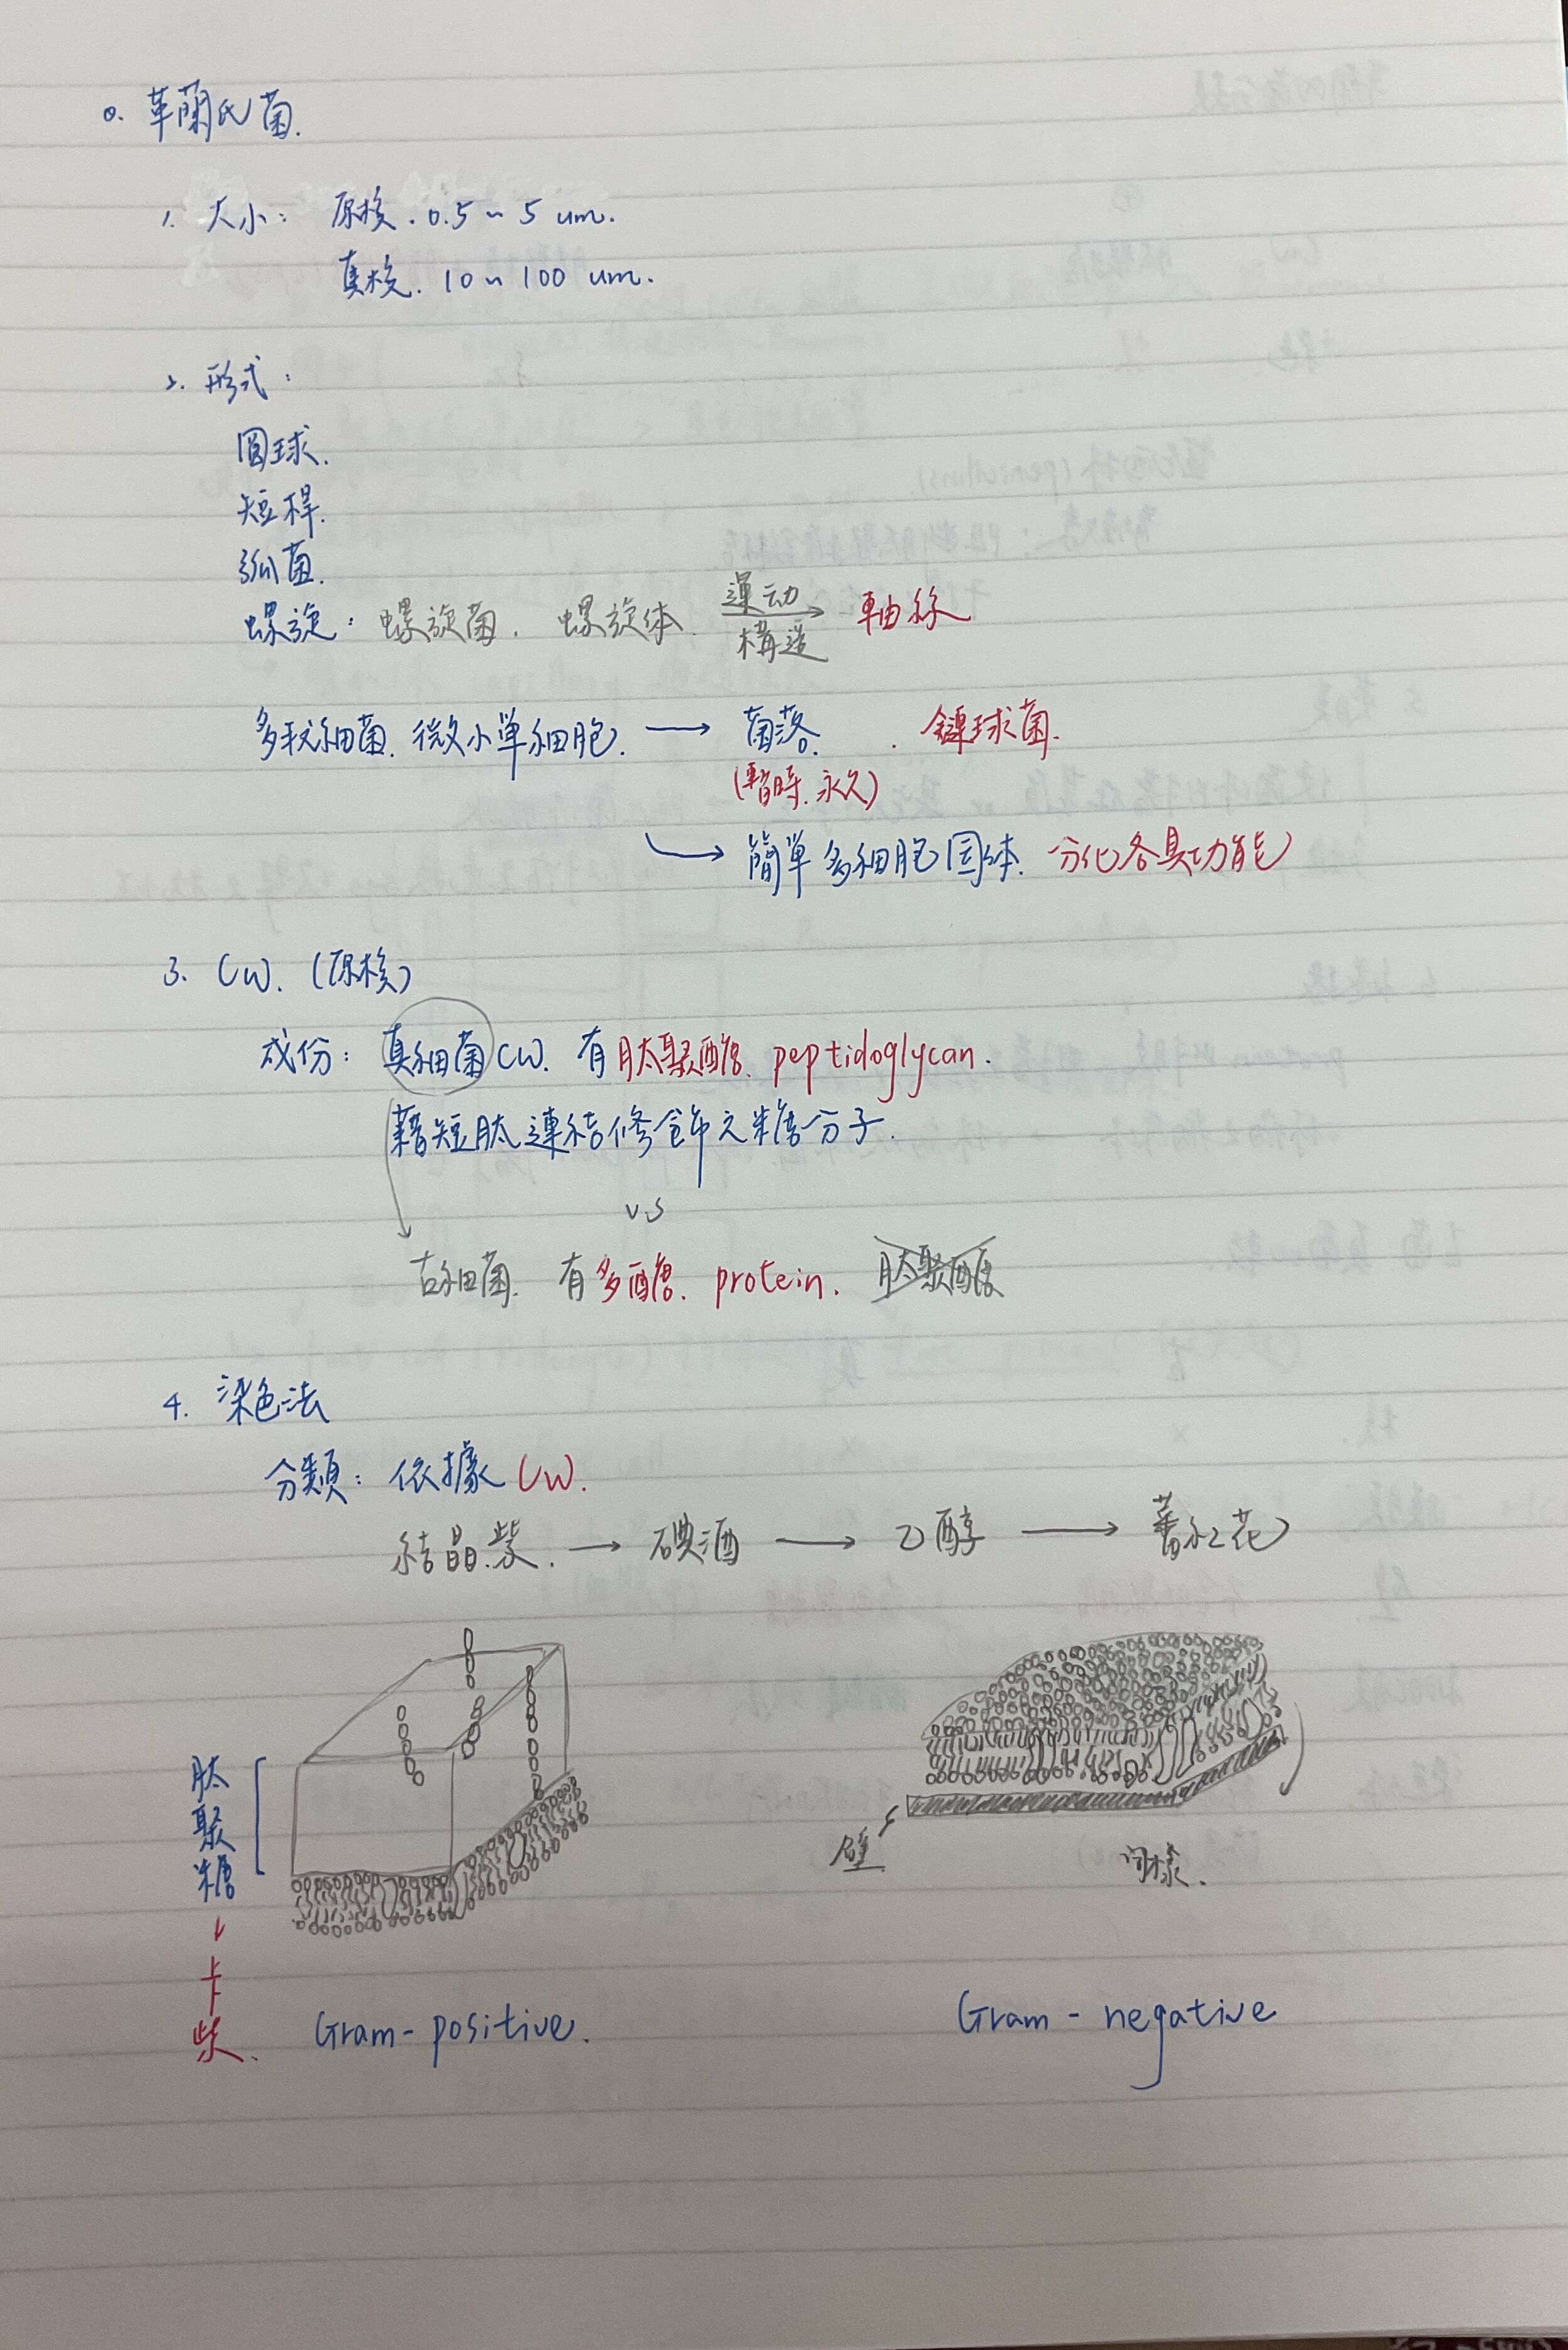 0. 革蘭氏菌.
1. 大小: 原核. 0.5 ~ 5 um.
真核. 10 ~ 100 um.
2. 形式:
圓球.
短桿.
弧菌.
螺旋: 螺旋菌. 螺旋体. 運动 構造 → 軸絲
多数細菌. 微小单細胞. → 菌落. . 鏈球菌.
(暫時. 永久)
→ 簡単多細胞团体. 分化各具功能
3. CW. (原核)
成份: 真細菌CW. 有肽聚醣. peptidoglycan.
藉短肽連結修飾之糖分子.
vs
古細菌. 有多醣. protein. 肽聚醣
4. 染色法
分類: 依據CW.
結晶紫. → 碘酒 → 乙醇 → 蕃红花
肽聚糖
卡紫.
壁
同樣.
Gram-positive.
Gram-negative